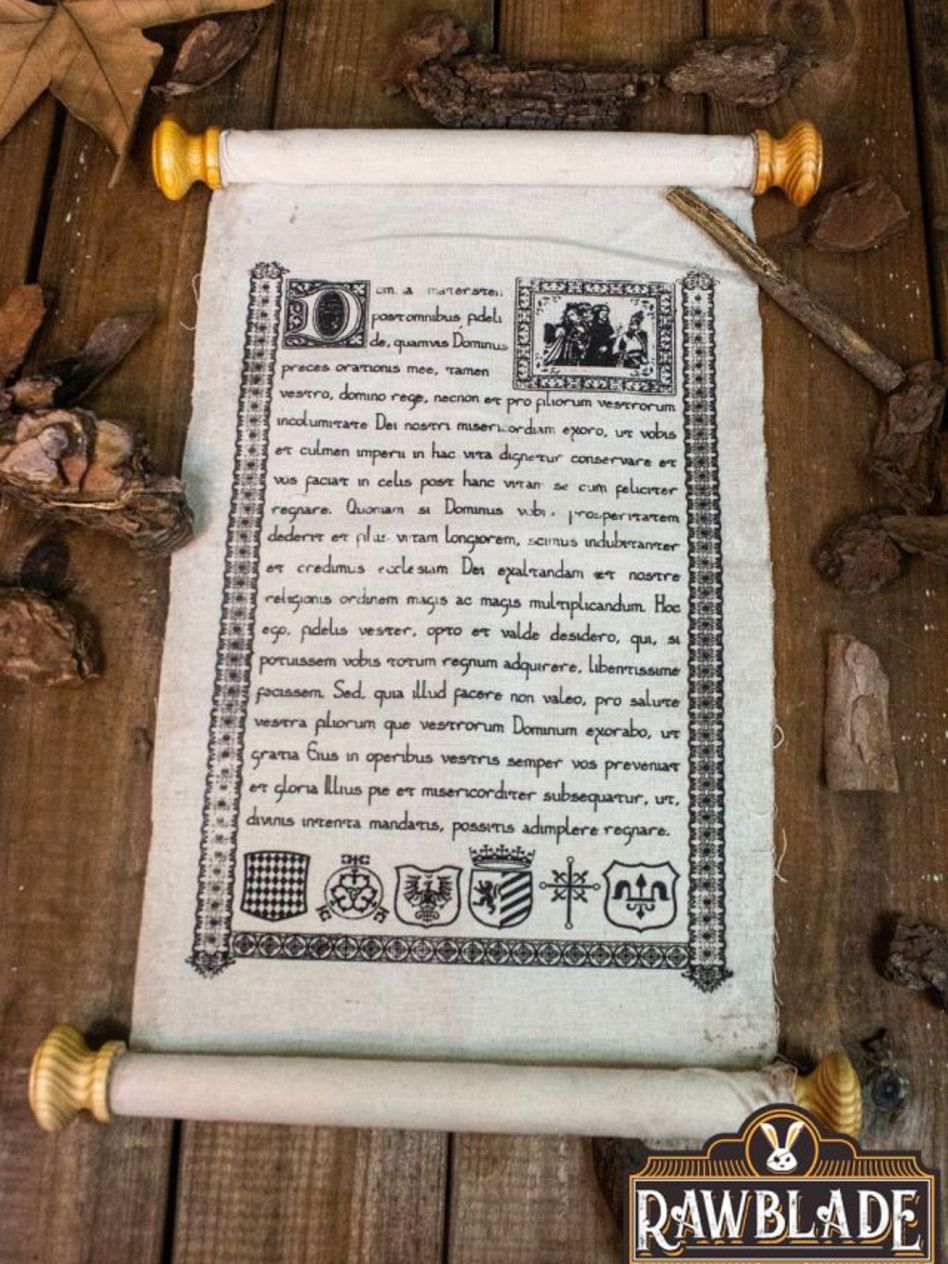 Dom a
post omnibus fideli
de, quamvis Dominus
preces orationis mee, tamen
vestro, domino rege, necnon et pro filiorum vestrorum
incolumitate Dei nostri misericordiam exoro, ut vobis
et culmen imperii in hac vita dignetur conservare et
vos faciat in celis post hanc vitam se cum feliciter
regnare. Quoniam si Dominus vobis prosperitatem
dederit et filiis vitam longiorem, scimus indubitanter
et credimus ecclesiam Dei exaltandam et nostre
religionis ordinem magis ac magis multiplicandum. Hoc
ego, fidelis vester, opto et valde desidero, qui, si
potuissem vobis totum regnum adquirere, libentissime
facissem. Sed, quia illud facere non valeo, pro salute
vestra filiorum que vestrorum Dominum exorabo, ut
gratia Eius in operibus vestris semper vos preveniat
et gloria Illius pie et misericorditer subsequatur, ut,
divinis intenta mandatis, possitis adimplere regnare.
RAWBLADE